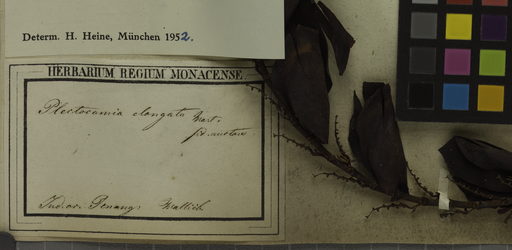 Determ. H. Heine, München 1952.
HERBARIUM REGIUM MONACENSE
Plectocomia elongata Mart.
fr. mature
Ind. or. Penang: Wallich